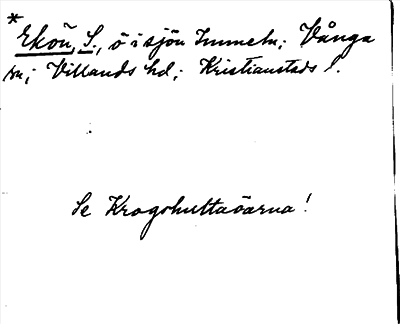 * Ekön, S., ö i sjön Immeln; Vånga
sn; Villands hd; Kristianstads l.
Se Krogshultaöarna!